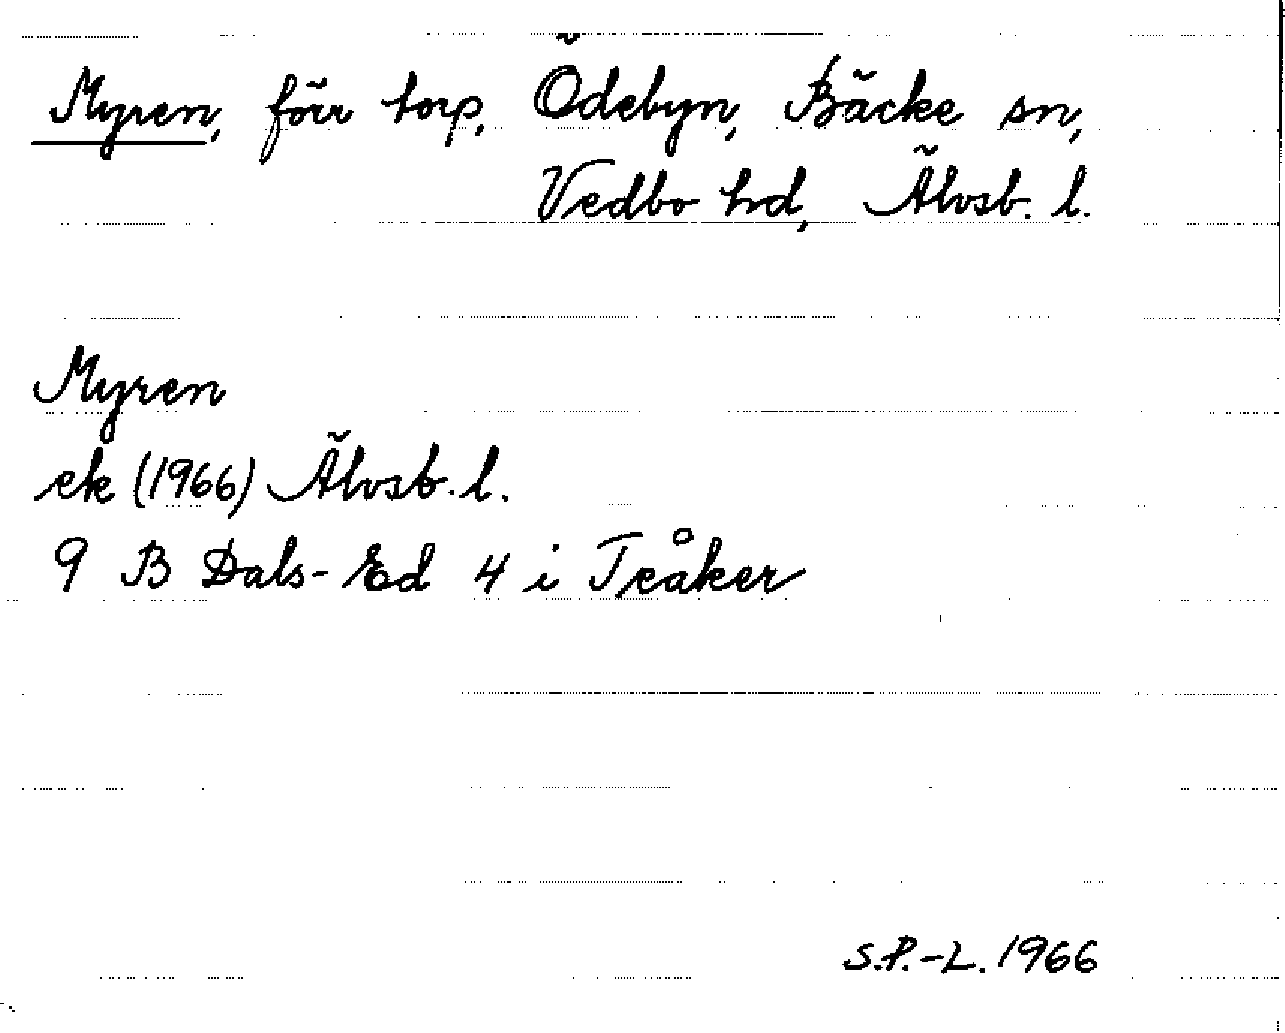 Myren, förr torp, Ödebyn, Bäcke sn,
Vedbo hd, Älvsb. l.
Myren
ek (1966) Älvsb. l.
9 B Dals-Ed 4 i Tråker
S.P.-L. 1966